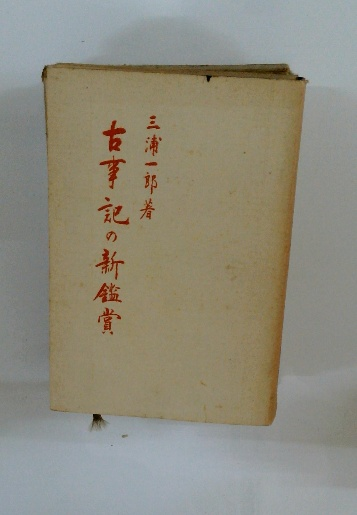 三浦一郎著
古事記の新鑑賞